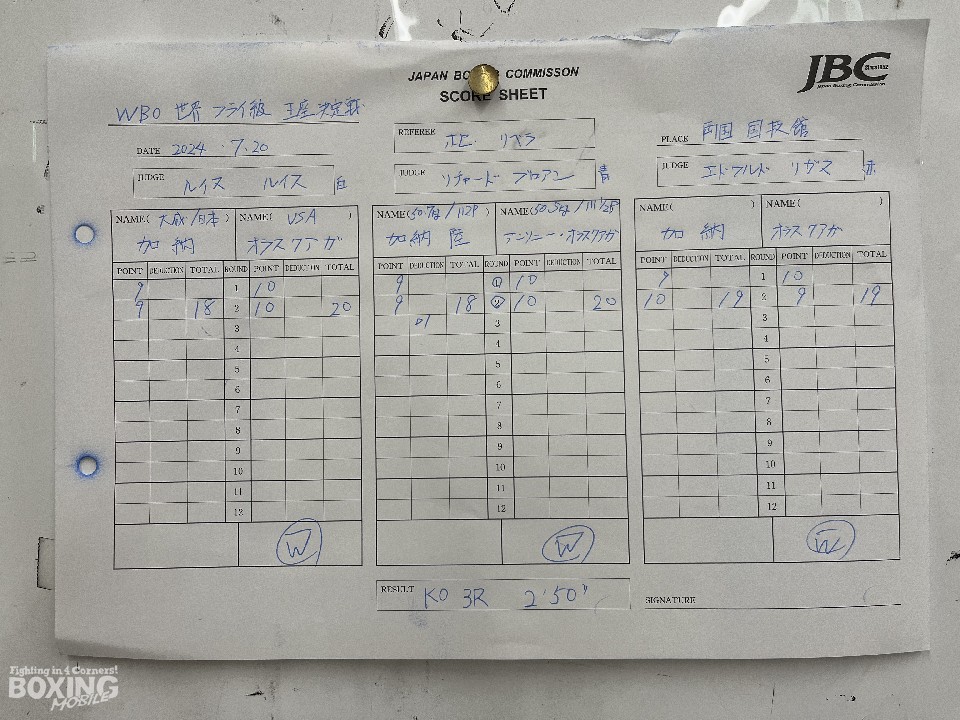 JAPAN BO COMMISSON
SCORE SHEET
JBC
Since1952
Japan Boxing Commission
WBO 世界 フライ級 王座決定戦
DATE 2024 . 7.20
REFEREE リベラ
PLACE 両国 国技館
JUDGE ルイス ルイス 白
JUDGE リチャード ブロアン 青
JUDGE エドワルド リガス 赤
NAME( 大成/日本 ) NAME( USA )
加納 オラスクアガ
NAME(50.7kg / 112P ) NAME( )
加納 陸 アンソニー・オラスクアガ
NAME( ) NAME( )
加納 オラスクアガ
POINT DEDUCTION TOTAL ROUND POINT DEDUCTION TOTAL
9 1 10
9 18 2 10 20
3
4
5
6
7
8
9
10
11
12
W
POINT DEDUCTION TOTAL ROUND POINT DEDUCTION TOTAL
9 1 10
9 18 2 10 20
D1 3
4
5
6
7
8
9
10
11
12
W
POINT DEDUCTION TOTAL ROUND POINT DEDUCTION TOTAL
9 1 10
10 19 2 9 19
3
4
5
6
7
8
9
10
11
12
W
RESULT KO 3R 2'50"
SIGNATURE
Fighting in 4 Corners!
BOXING
MOBILE